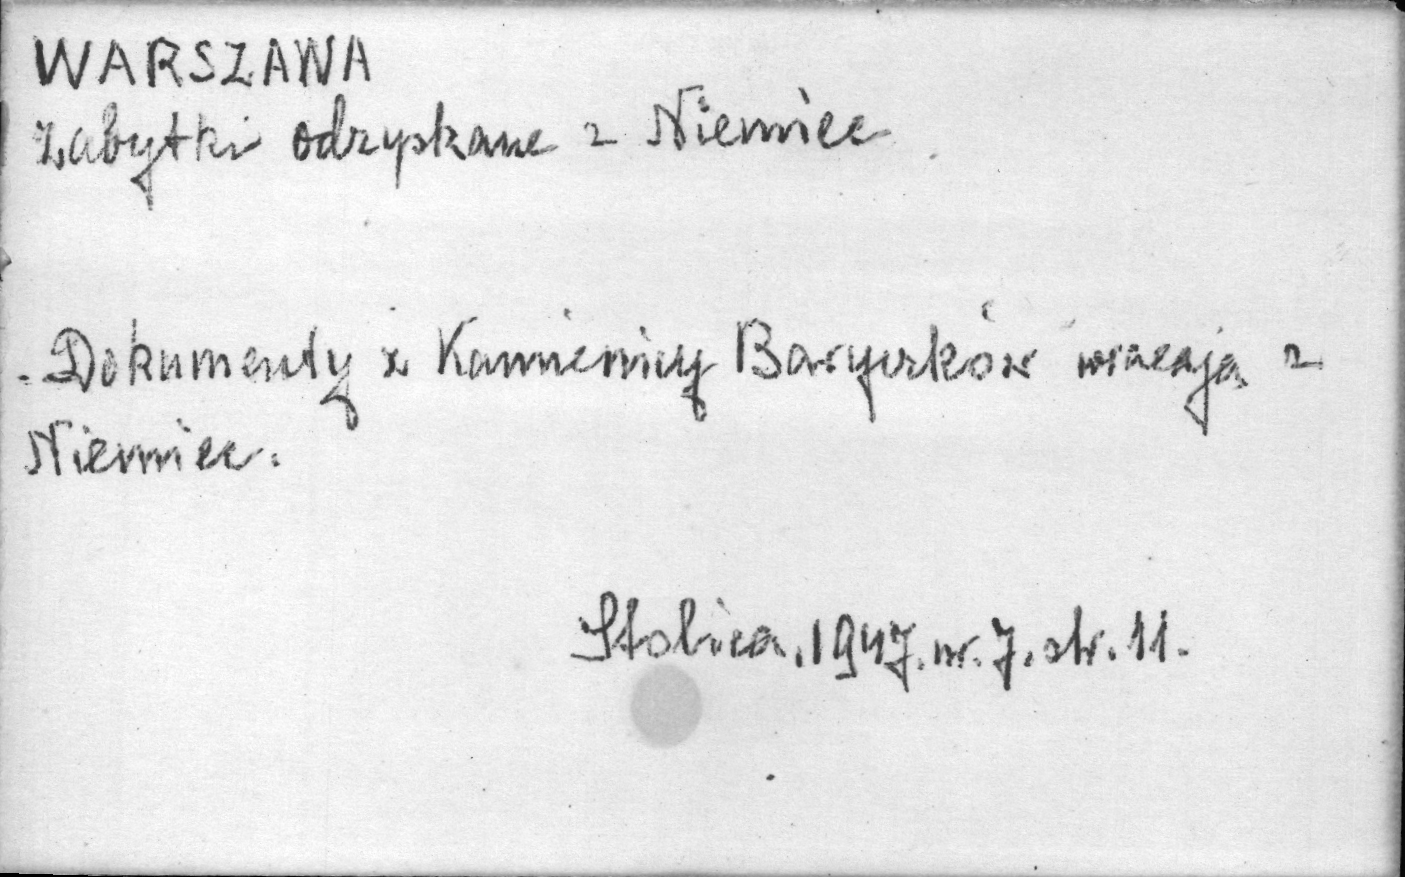 WARSZAWA
Zabytki odzyskane z Niemiec
Dokumenty z Kamienicy Baryczków wracają z
Niemiec.
Stolica. 1947. nr. 7. str. 11.